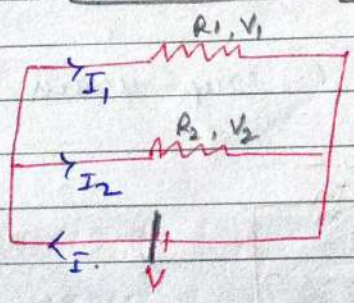 R1, V1
I1
R2, V2
I2
I.
V